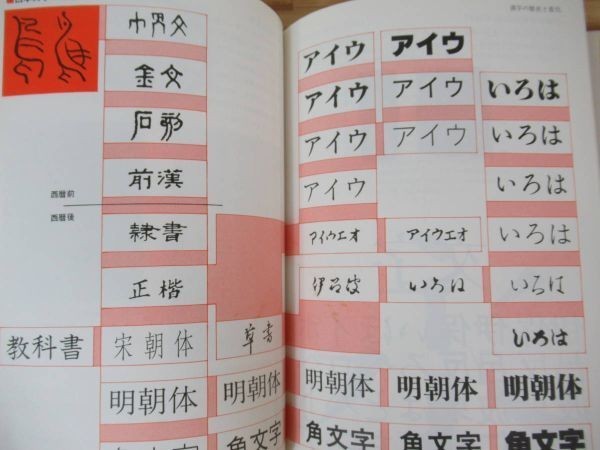 漢字の歴史と変化
甲骨文
金文
石刻
前漢
西暦前
西暦後
隷書
正楷
教科書
宋朝体
草書
明朝体
明朝体
角文字
角文字
アイウ
アイウ
アイウ
アイウ
いろは
アイウ
アイウ
いろは
アイウ
いろは
アイウエオ
アイウエオ
いろは
伊呂波
いろは
いろは
いろは
明朝体
明朝体
明朝体
角文字
角文字
角文字